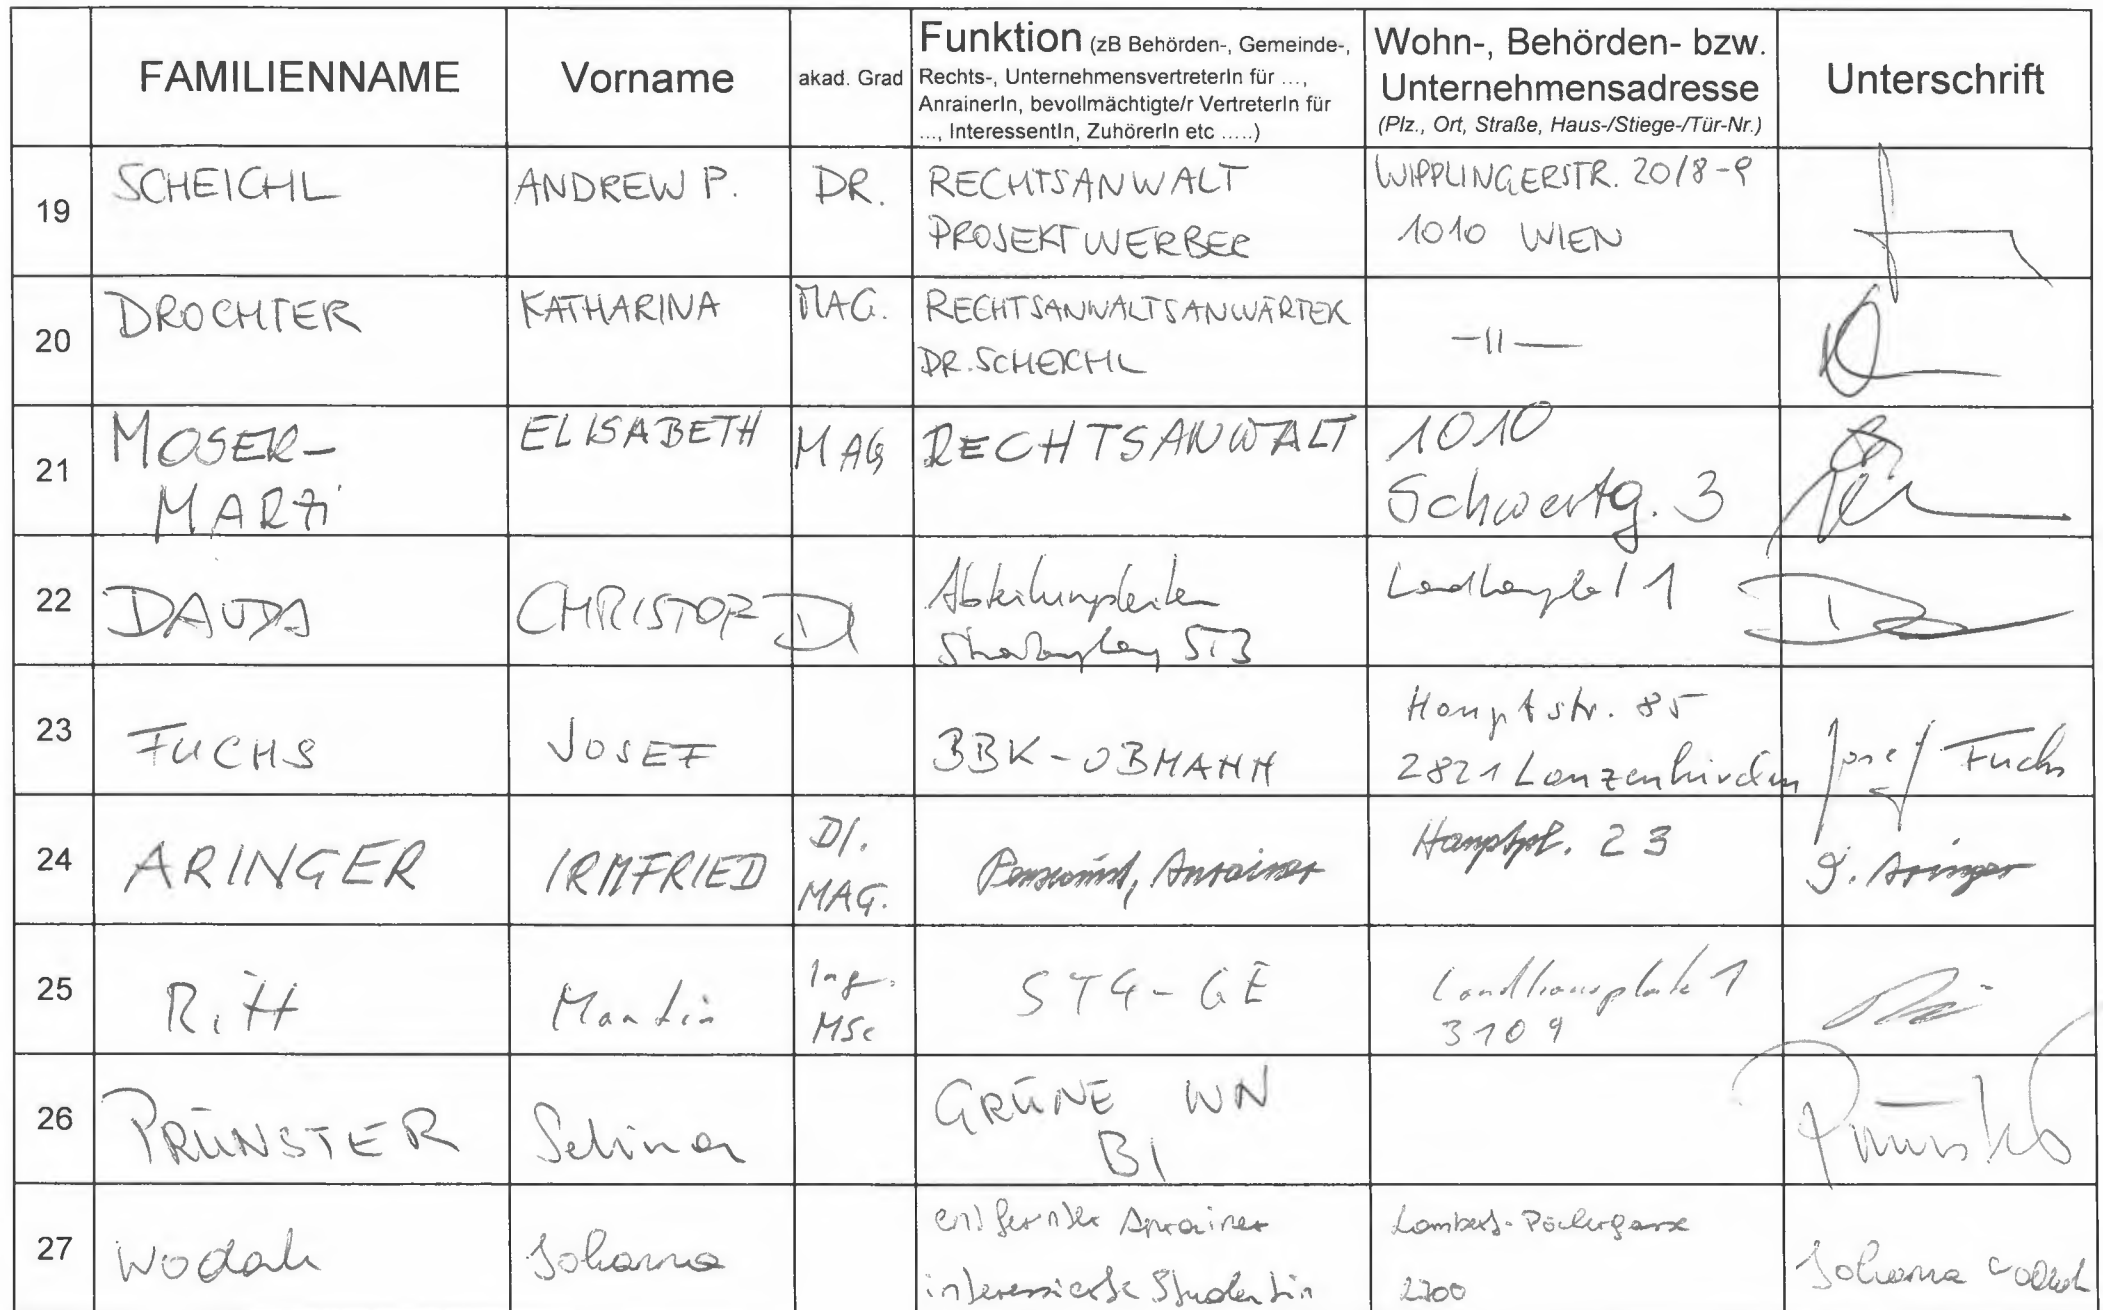 FAMILIENNAME
Vorname
akad. Grad
Funktion (zB Behörden-, Gemeinde-,
Rechts-, UnternehmensvertreterIn für ...,
AnrainerIn, bevollmächtigte/r VertreterIn für
..., InteressentIn, ZuhörerIn etc .....)
Wohn-, Behörden- bzw.
Unternehmensadresse
(Plz., Ort, Straße, Haus-/Stiege-/Tür-Nr.)
Unterschrift
19
SCHEICHL
ANDREW P.
DR.
RECHTSANWALT
PROJEKTWERBER
WIPPLINGERSTR. 20/8-9
1010 WIEN
20
DROCHTER
KATHARINA
MAG.
RECHTSANWALTSANWÄRTER
DR. SCHEICHL
-11-
21
MOSER-
MARZI
ELISABETH
MAG
RECHTSANWALT
1010
Schwertg. 3
22
DAUDA
CHRISTOF
DI
Abteilungsleiter
ST3
1
23
FUCHS
JOSEF
BBK-OBMANN
Hauptstr. 85
2821 Lanzenkirchen
Josef Fuchs
24
ARINGER
IRMFRIED
DI.
MAG.
Pensionist, Anrainer
Hauptpl. 23
I. Aringer
25
Ritt
Martin
Ing.
MSc
ST4-GE
Landhausplatz 1
3109
26
PRÜNSTER
Selina
GRÜNE WN
BI
Prünster
27
Wodak
Johanna
entfernter Anrainer
interessierte Studentin
2700
Johanna Wodak